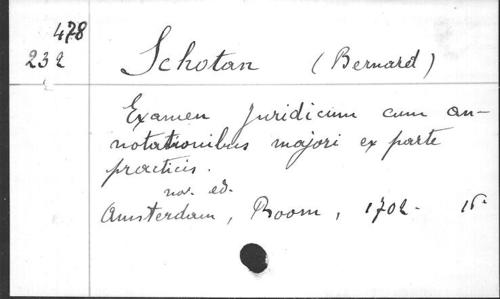 478
232
Schotan (Bernard)
Examen Juridicum cum an-
notationibus majori ex parte
practicis.
nov. ed.
Amsterdam, Boom, 1702. 16°